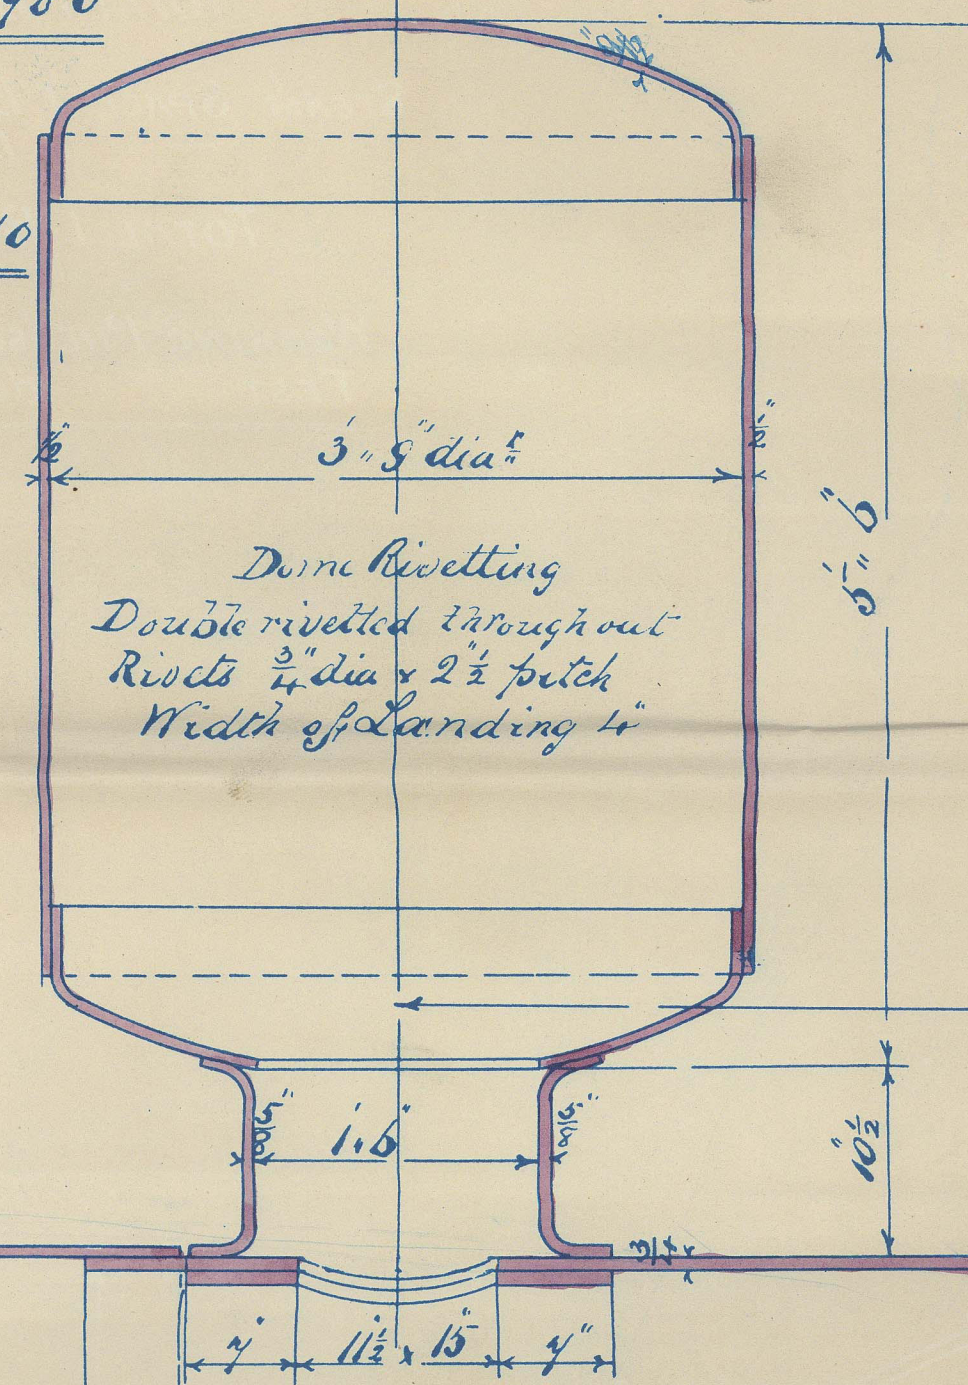 1/2"
3' " 9" diar
1/2"
5' " 6"
Dome Rivetting
Double rivetted throughout
Rivets 3/4" dia & 2" 1/2 pitch
Width of Landing 4"
5/8"
1' " 6"
5/8"
10 1/2"
3/4
7"
11 1/2" x 15"
7"